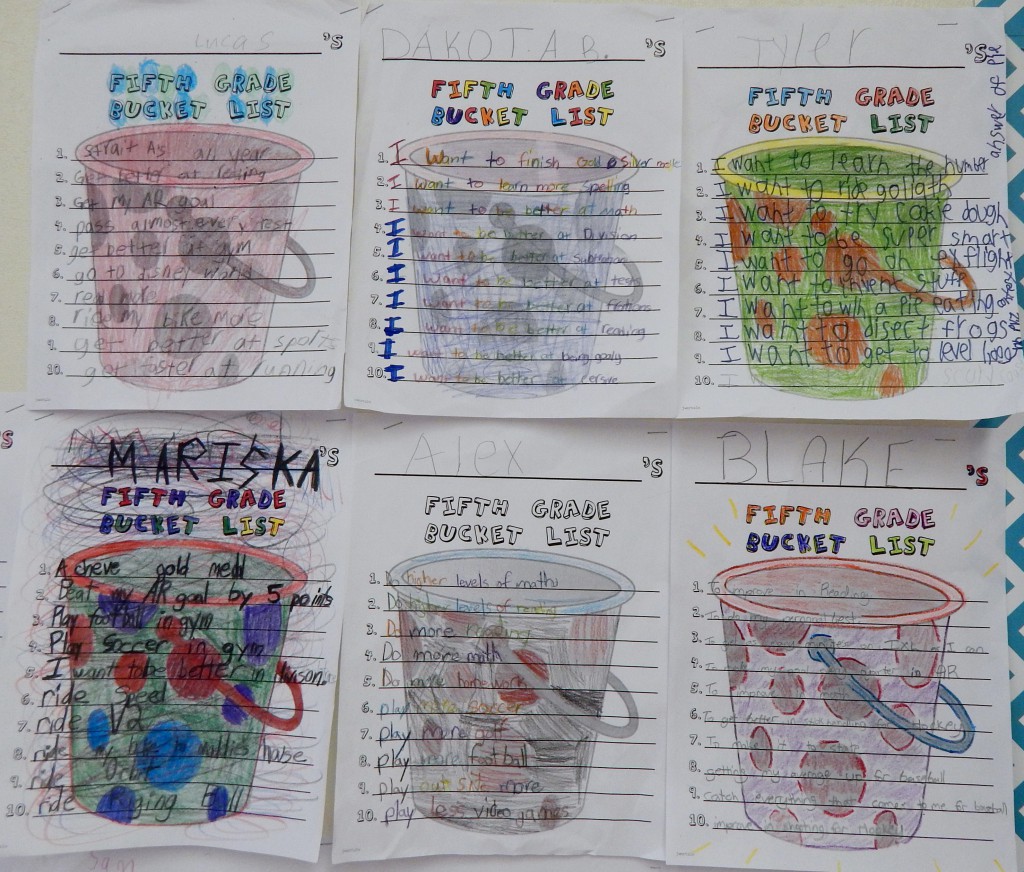 Lucas 's
FIFTH GRADE
BUCKET LIST
1. Strait As all year
2. Get better at reding
3. Get my AR goal
4. pass almost every test
5. get better at gym
6. go to disney world
7. read more
8. ride my bike more
9. get better at sports
10. get faster at running
DAKOTA B. 's
FIFTH GRADE
BUCKET LIST
1. I want to finish Gold & Silver
2. I want to learn more Spelling
3. I want to be better at math
4. I want to be better at Division
5. I want to be better at Subtration
6. I want to be better at
7. I want to be better at
8. I want to be better at reading
9. I want to be better at being
10. I want to be better at
Tyler 's
FIFTH GRADE
BUCKET LIST
1. I want to learn the humber answer of Pie
2. I want to ride goliath
3. I want to try cookie dough
4. I want to be super smart
5. I want to go on flight
6. I want to invent stuff
7. I want to win a pie eating
8. I want to disect frogs
9. I want to get to level
10. I
MARISKA 's
FIFTH GRADE
BUCKET LIST
1. Acheve gold medl
2. Beat my AR goal by 5 points
3. Play football in gym
4. Play soccer in gym
5. I want to be better in
6. ride Steel
7. ride V2
8. ride my bike to house
9. ride Orbit
10. ride raging bull
Alex 's
FIFTH GRADE
BUCKET LIST
1. Do higher levels of math
2. Do higher levels of reading
3. Do more
4. Do more math
5. Do more homework
6. play more soccer
7. play more golf
8. play more football
9. play out side more
10. play less video games
BLAKE 's
FIFTH GRADE
BUCKET LIST
1. To improve in Reading
2. To
3. To get I can
4. To in AR
5. To improve
6. To get better for hockey
7. To make
8. getting my average up for baseball
9. catch everything that comes to me for baseball
10. improve my for Hockey
Sam